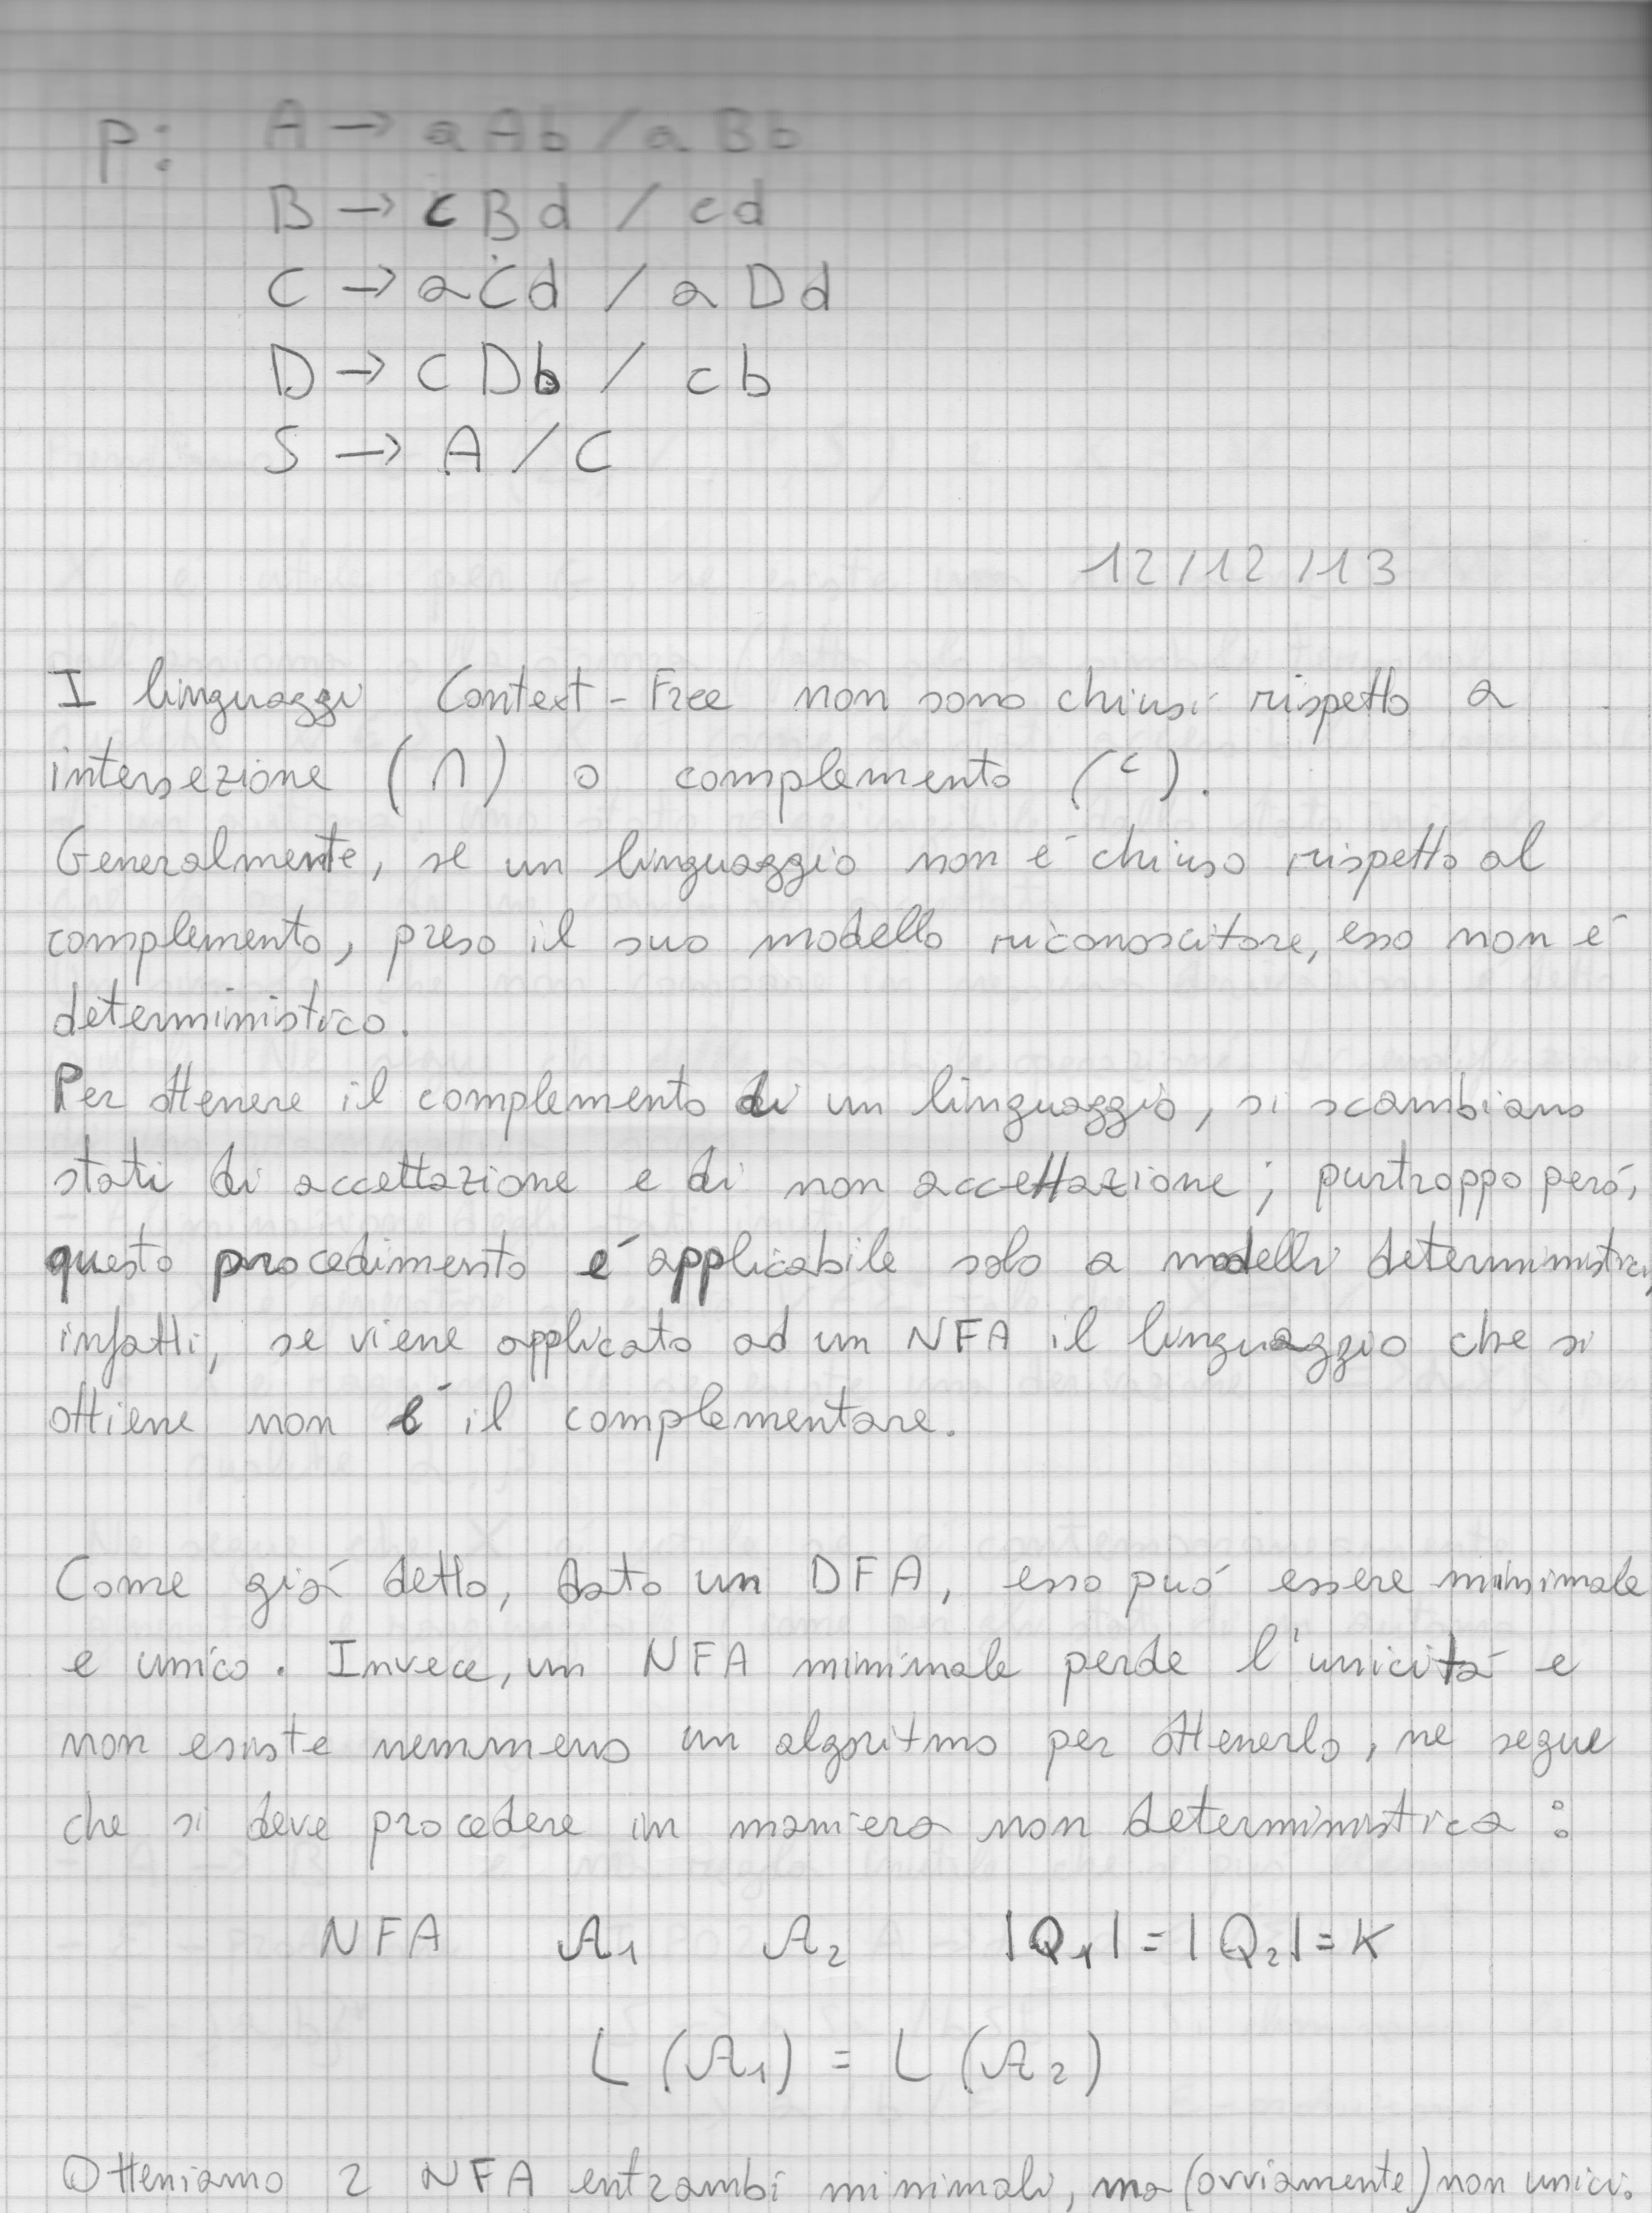 p: A → aAb / aBb
B → cBd / cd
C → aCd / aDd
D → cDb / cb
S → A / C
12/12/13
I linguaggi Context-Free non sono chiusi rispetto a
intersezione (∩) o complemento (ᶜ).
Generalmente, se un linguaggio non é chiuso rispetto al
complemento, preso il suo modello riconoscitore, esso non é
deterministico.
Per ottenere il complemento di un linguaggio, si scambiano
stati di accettazione e di non accettazione; purtroppo peró,
questo procedimento é applicabile solo a modelli deterministici,
infatti, se viene applicato ad un NFA il linguaggio che si
ottiene non é il complementare.
Come giá detto, dato un DFA, esso puó essere minimale
e unico. Invece, un NFA minimale perde l'unicitá e
non esiste nemmeno un algoritmo per ottenerlo, ne segue
che si deve procedere in maniera non deterministica:
NFA A₁ A₂ |Q₁| = |Q₂| = K
L (A₁) = L (A₂)
Otteniamo 2 NFA entrambi minimali, ma (ovviamente) non unici.